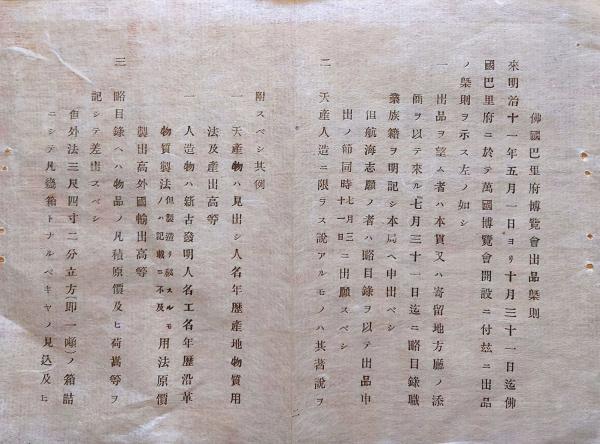 佛國巴里府博覽會出品槼則
來明治十一年五月一日ヨリ十月三十一日迄佛
國巴里府ニ於テ萬國博覽會開設ニ付玆ニ出品
ノ槼則ヲ示ス左ノ如シ
一 出品ヲ望ム者ハ本貫又ハ寄留地方廳ノ添
簡ヲ以テ來ル七月三十一日迄ニ略目錄職
業族籍ヲ明記シ本局ヘ申出ベシ
但航海志願ノ者ハ略目錄ヲ以テ出品申
出ノ節同時七月三十一日ニ出願スベシ
二 天產人造ニ限ラス說アルモノハ其著說ヲ
附スベシ其例
天產物ハ見出シ人名年歷產地物質用
法及產出高等
一 人造物ハ新古發明人名工名年歷沿革
物質製法但製造ヲ秘スルモノハ記載ニ不及用法原價
製出高外國輸出高等
三 略目錄ヘハ物品ノ凡積原價及ヒ荷嵩等ヲ
記シテ差出スベシ
但外法三尺四寸二分立方(即一噸)ノ箱詰
ニシテ凡幾箱トナルベキヤノ見込及ヒ
二